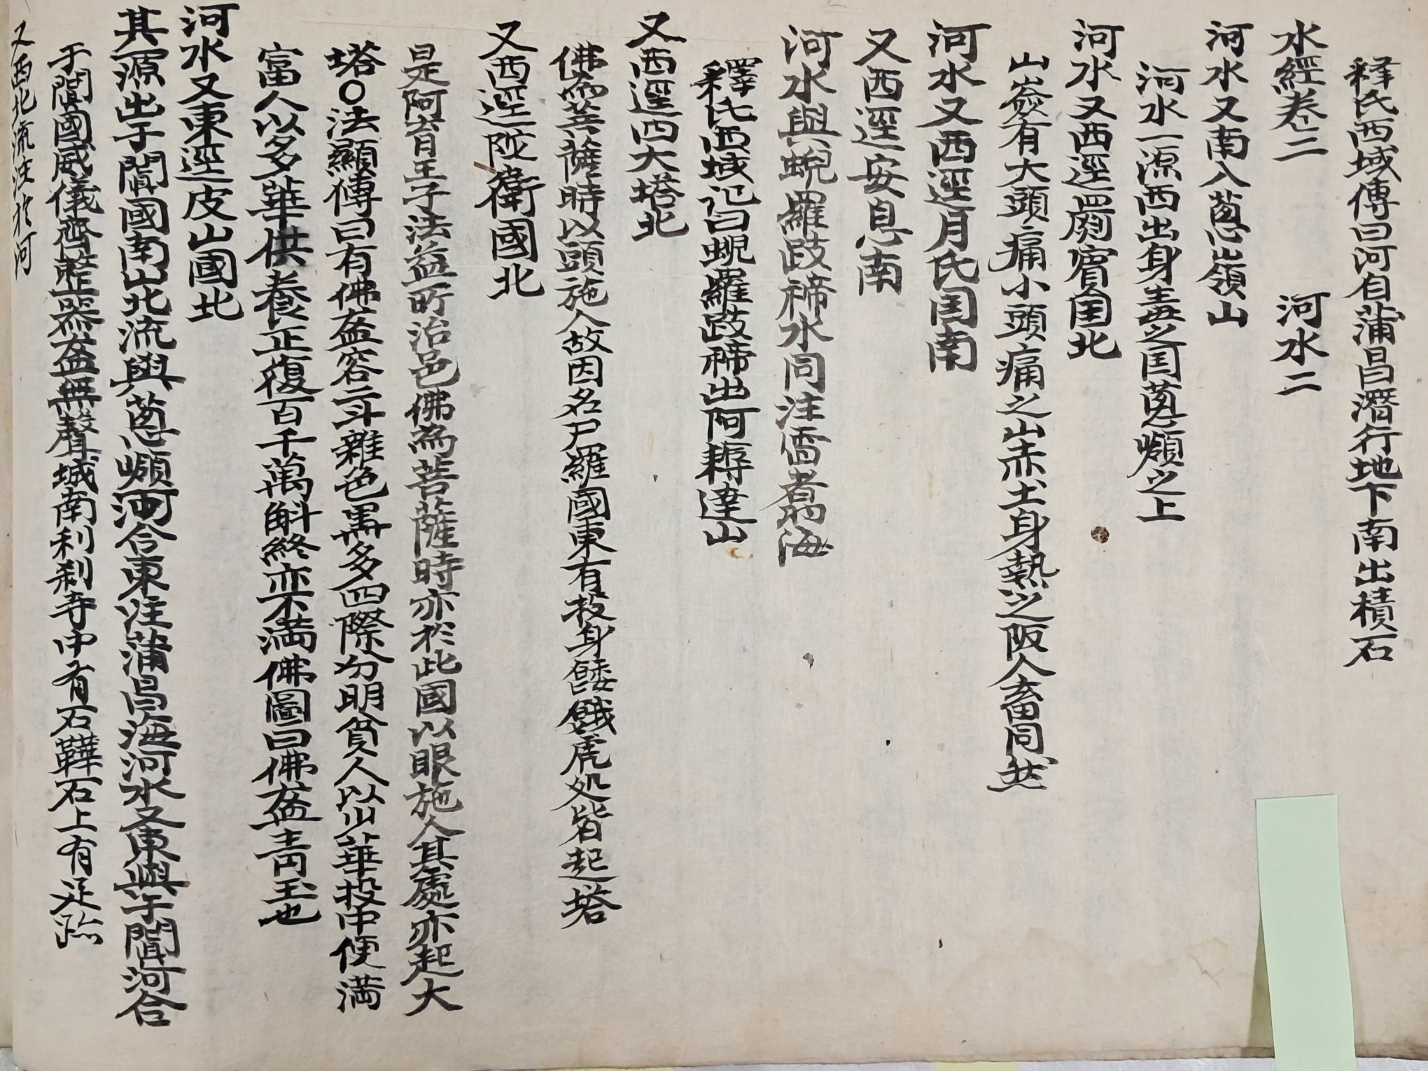 釋氏西域傳曰河自蒲昌潛行地下南出積石
水經卷二　　河水二
河水又南入葱嶺山
河水一源西出身毒之国葱嶺之上
河水又西逕罽賓国北
山險有大頭痛小頭痛之山赤土身熱之阪人畜同然
河水又西逕月氏国南
又西逕安息南
河水與蜺羅跂禘水同注雷翥海
釋氏西域记曰蜺羅跂禘出阿耨達山
又西逕四大塔北
佛為菩薩時以頭施人故因名尸羅國東有投身餧餓虎処皆起塔
又西逕陁衛國北
是阿育王子法益所治邑佛為菩薩時亦於此國以眼施人其處亦起大
塔○法顯傳曰有佛盔容二斗雜色黒多四際分明貧人以少華投中便満
富人以多華供養正復百千萬斛終亦不満佛圖曰佛盔青玉也
河水又東逕皮山國北
其源出于闐國南山北流與葱嶺河合東注蒲昌海河水又東與于闐河合
于闐國威儀齊整器盔無聲城南利刹寺中有石鞾石上有足跡
又西北流注於河